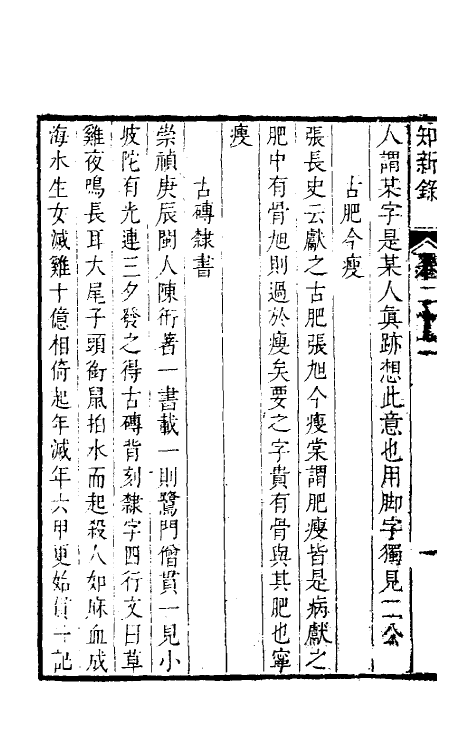 知新錄
人謂某字是某人眞跡想此意也用脚字獨見二公
古肥今瘦
張長史云獻之古肥張旭今瘦棠謂肥瘦皆是病獻之
肥中有骨旭則過於瘦矣要之字貴有骨與其肥也寧
瘦
古磚隸書
崇禎庚辰閩人陳衎著一書載一則鷺門僧貫一見小
坡陀有光連三夕發之得古磚背刻隸字四行文曰草
雞夜鳴長耳大尾子頭銜鼠拍水而起殺人如麻血成
海水生女滅雞十億相倚起年滅年六甲更始貫一記